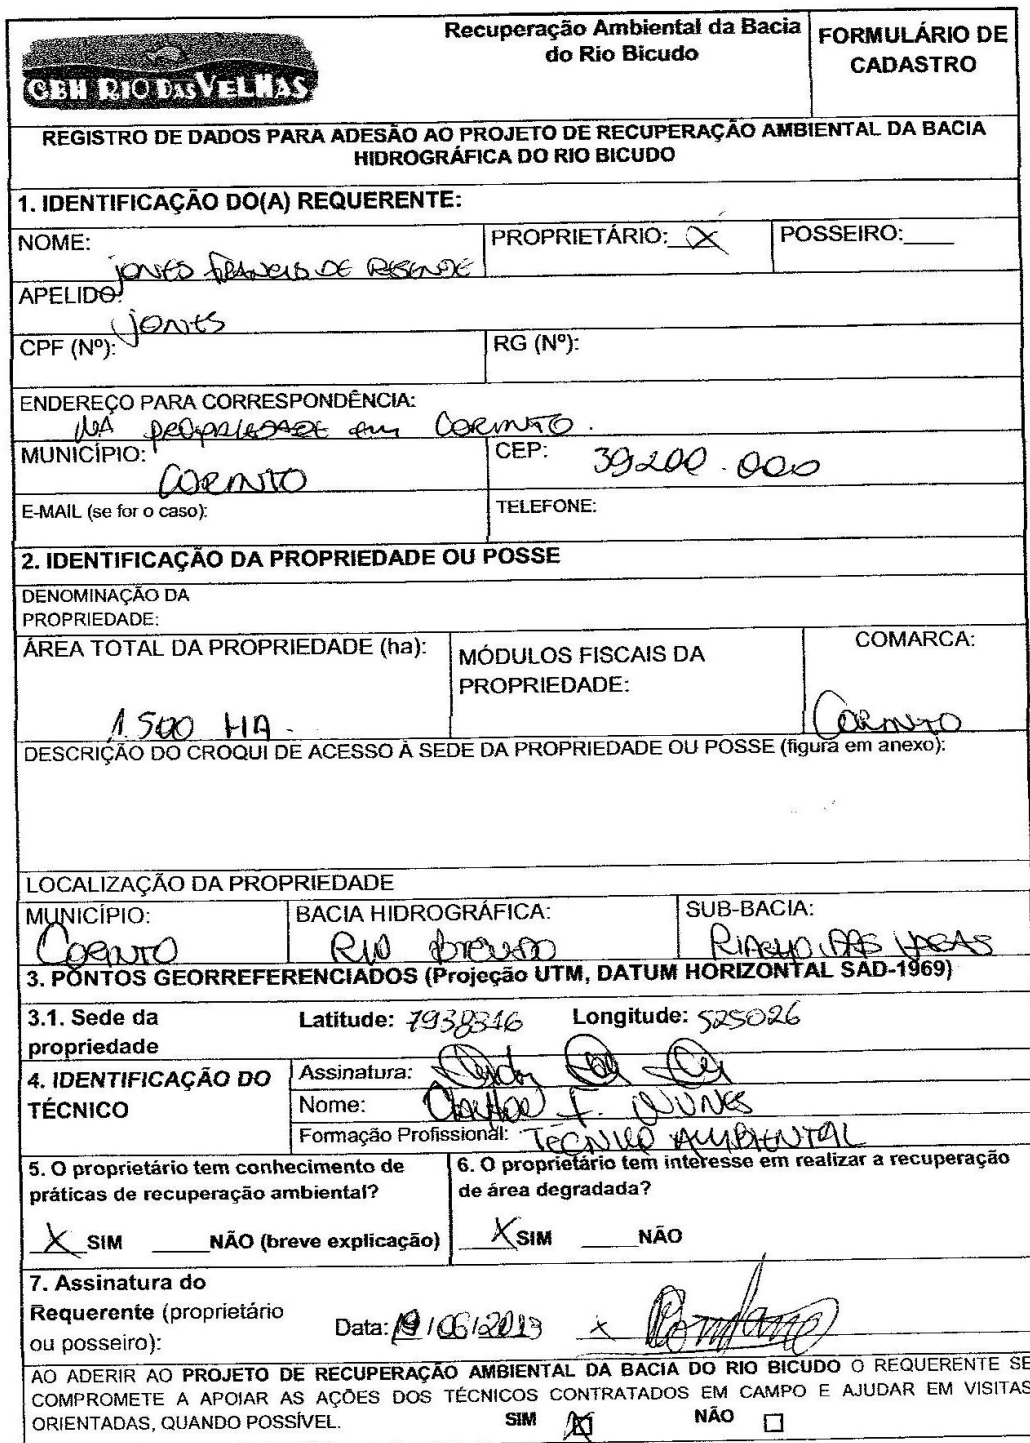 CBH RIO DAS VELHAS
Recuperação Ambiental da Bacia
do Rio Bicudo
FORMULÁRIO DE
CADASTRO
REGISTRO DE DADOS PARA ADESÃO AO PROJETO DE RECUPERAÇÃO AMBIENTAL DA BACIA
HIDROGRÁFICA DO RIO BICUDO
1. IDENTIFICAÇÃO DO(A) REQUERENTE:
NOME: PROPRIETÁRIO: X POSSEIRO:____
JONES FRANCIS DE RESENDE
APELIDO:
JONES
CPF (Nº): RG (Nº):
ENDEREÇO PARA CORRESPONDÊNCIA:
NA PROPRIEDADE em CORINTO.
MUNICÍPIO: CEP: 39200.000
CORINTO
E-MAIL (se for o caso): TELEFONE:
2. IDENTIFICAÇÃO DA PROPRIEDADE OU POSSE
DENOMINAÇÃO DA
PROPRIEDADE:
ÁREA TOTAL DA PROPRIEDADE (ha):
1.500 HA.
MÓDULOS FISCAIS DA
PROPRIEDADE:
COMARCA:
CORINTO
DESCRIÇÃO DO CROQUI DE ACESSO À SEDE DA PROPRIEDADE OU POSSE (figura em anexo):
LOCALIZAÇÃO DA PROPRIEDADE
MUNICÍPIO: BACIA HIDROGRÁFICA: SUB-BACIA:
CORINTO RIO BICUDO RIACHO DAS
3. PONTOS GEORREFERENCIADOS (Projeção UTM, DATUM HORIZONTAL SAD-1969)
3.1. Sede da
propriedade
Latitude: 7938316 Longitude: 525026
4. IDENTIFICAÇÃO DO
TÉCNICO
Assinatura:
Nome: F. NUNES
Formação Profissional: TÉCNICO AMBIENTAL
5. O proprietário tem conhecimento de
práticas de recuperação ambiental?
X SIM _____NÃO (breve explicação)
6. O proprietário tem interesse em realizar a recuperação
de área degradada?
X SIM _____NÃO
7. Assinatura do
Requerente (proprietário
ou posseiro):
Data: 19/06/2013 x
AO ADERIR AO PROJETO DE RECUPERAÇÃO AMBIENTAL DA BACIA DO RIO BICUDO O REQUERENTE SE
COMPROMETE A APOIAR AS AÇÕES DOS TÉCNICOS CONTRATADOS EM CAMPO E AJUDAR EM VISITAS
ORIENTADAS, QUANDO POSSÍVEL. SIM ☒ NÃO ☐